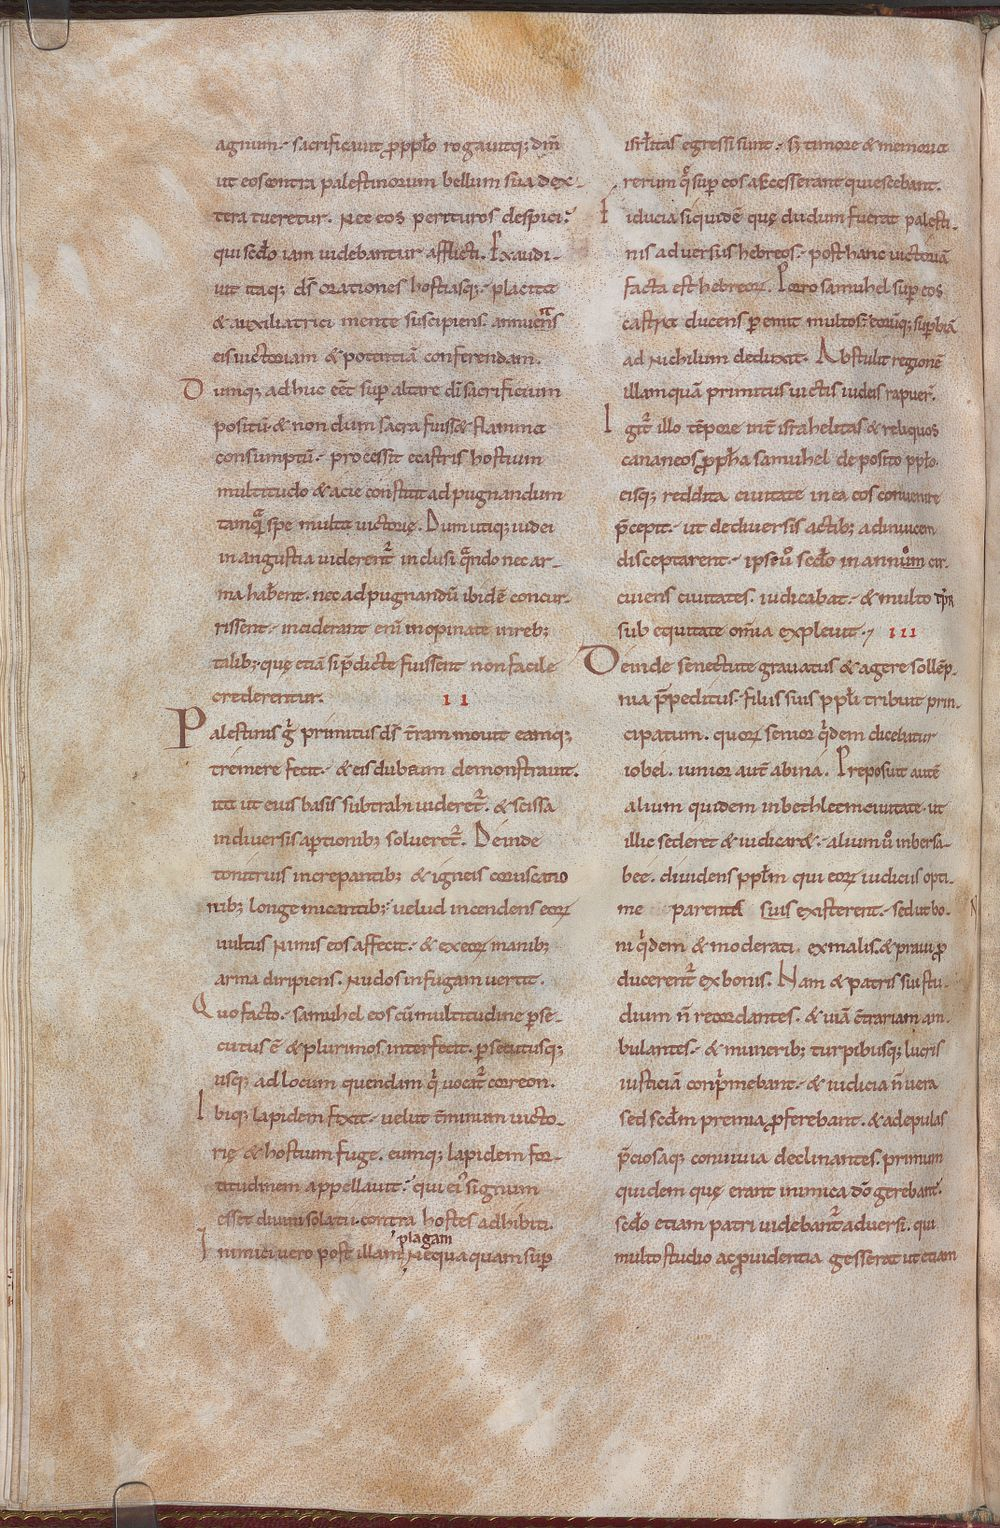 agnum. sacrificauit ꝓ ppło rogauitq; dm̄
ut eos contra palestinorum bellum sua dex-
tera tueretur. Nec eos perituros despici.
qui sedo iam uidebantur afflicti. Exaudi-
uit itaq; ds̄ orationes hostiasq; placita
& auxiliatrici mente suscipiens. annuens
eis uictoriam & potentiā conferendam.
Dumq; adhuc eet̄ sup altare dī sacrificium
positū & non dum sacra fuisset flamma
consumptū. processit e castris hostium
multitudo & acie constitit ad pugnandum
tamquā spe multa uictorię. Dum utiq; iudei
in angustia uiderent̄ inclusi quando nec ar-
ma habent. nec ad pugnandū ibidē concur-
rissent. inciderant enī inopinate in reb;
talib; quę etiā si p̄dicte fuissent non facile
crederentur. II
Palestinis g̊ primitus ds̄ t̄ram mouit eamq;
tremere fecit. & eis dubium demonstrauit.
ita ut eius basis subtrahi uideret̄. & scissa
in diuersis aꝑtionib; solueret̄. Deinde
tonitruis increpantib; & igneis coruscatio
nib; longe micantib; uelud incendens eoꝝ
uultus nimis eos affecit. & ex eoꝝ manib;
arma diripiens. nudos in fugam uertit.
Quo facto. samuhel eos cū multitudine ꝑse-
cutus ē & plurimos interfecit. ꝑsecutusq;
usq; ad locum quendam q̊ uocat̄ correon.
Ibiq; lapidem fixit. uelut t̄minum uicto-
rię & hostium fuge. eumq; lapidem for-
titudinem appellauit. qui ei signum
esset diuini solatii contra hostes adhibiti.
plagam
Inimici uero post illam nequaquam sup
isrłitas egressi sunt. sz timore & memoria
rerum q̄ sup eos accesserant quiescebant.
Fiducia siquidē quę dudum fuerat palesti-
nis aduersus hebreos. post hanc uictoriā
facta est hebreoꝝ. Porro samuhel sup eos
castra ducens ꝑemit multos. eorūq; supbiā
ad nichilum deduxit. Abstulit regionē
illam quā primitus uictis iudeis rapuer̄.
Igit̄ illo tēpore int̄ israhelitas & reliquos
cananeos ꝓpha samuhel deposito pplo.
eisq; reddita ciuitate in ea eos conuenire
p̄cepit. ut de diuersis actib; ad inuicem
disceptarent. ipse ů sedo in annum cir-
cuiens ciuitates. iudicabat. & multo tp̄r
sub equitate om̄ia expleuit. III
Deinde senectute grauatus & agere sollēp-
nia p̄peditus. filiis suis ppłi tribuit prin-
cipatum. quoꝝ senior q̄dem dicebatur
iobel. iunior aut̄ abina. Preposuit autē
alium quidem in bethleem ciuitate. ut
illic sederet & iudicaret. alium ů in bersa-
beę. diuidens ppłm qui eoꝝ iudiciis opti-
me parente suis existerent. sed ut bo-
ni q̄dem & moderati ex malis. & praui ꝓ
ducerent̄ ex bonis. Nam & patris sui stu-
dium n̄ recordantes. & uiā c̄trariam am-
bulantes. & munerib; turpibusq; lucris
iusticiā conp̄mebant. & iudicia n̄ uera
sed scdm premia ꝓferebant. & ad epulas
p̄ciosaq; conuiuia declinantes. primum
quidem quę erant inimica dō gerebant.
sedo etiam patri uidebant̄ aduersi. qui
multo studio ac ꝓuidentia gesserat ut etiam